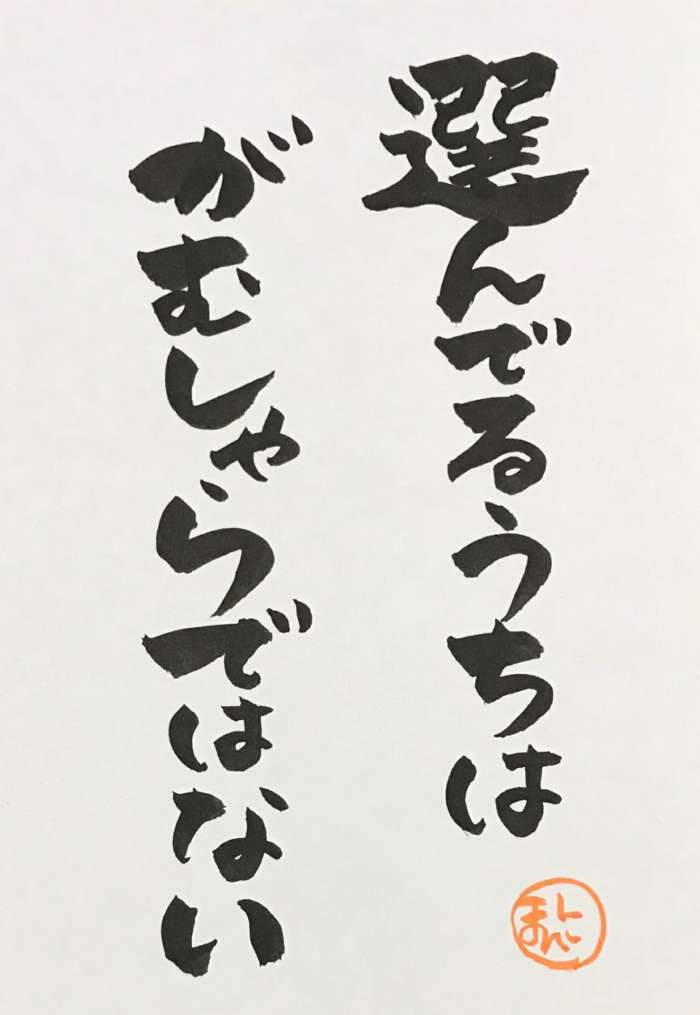 選んでるうちは
がむしゃらではない